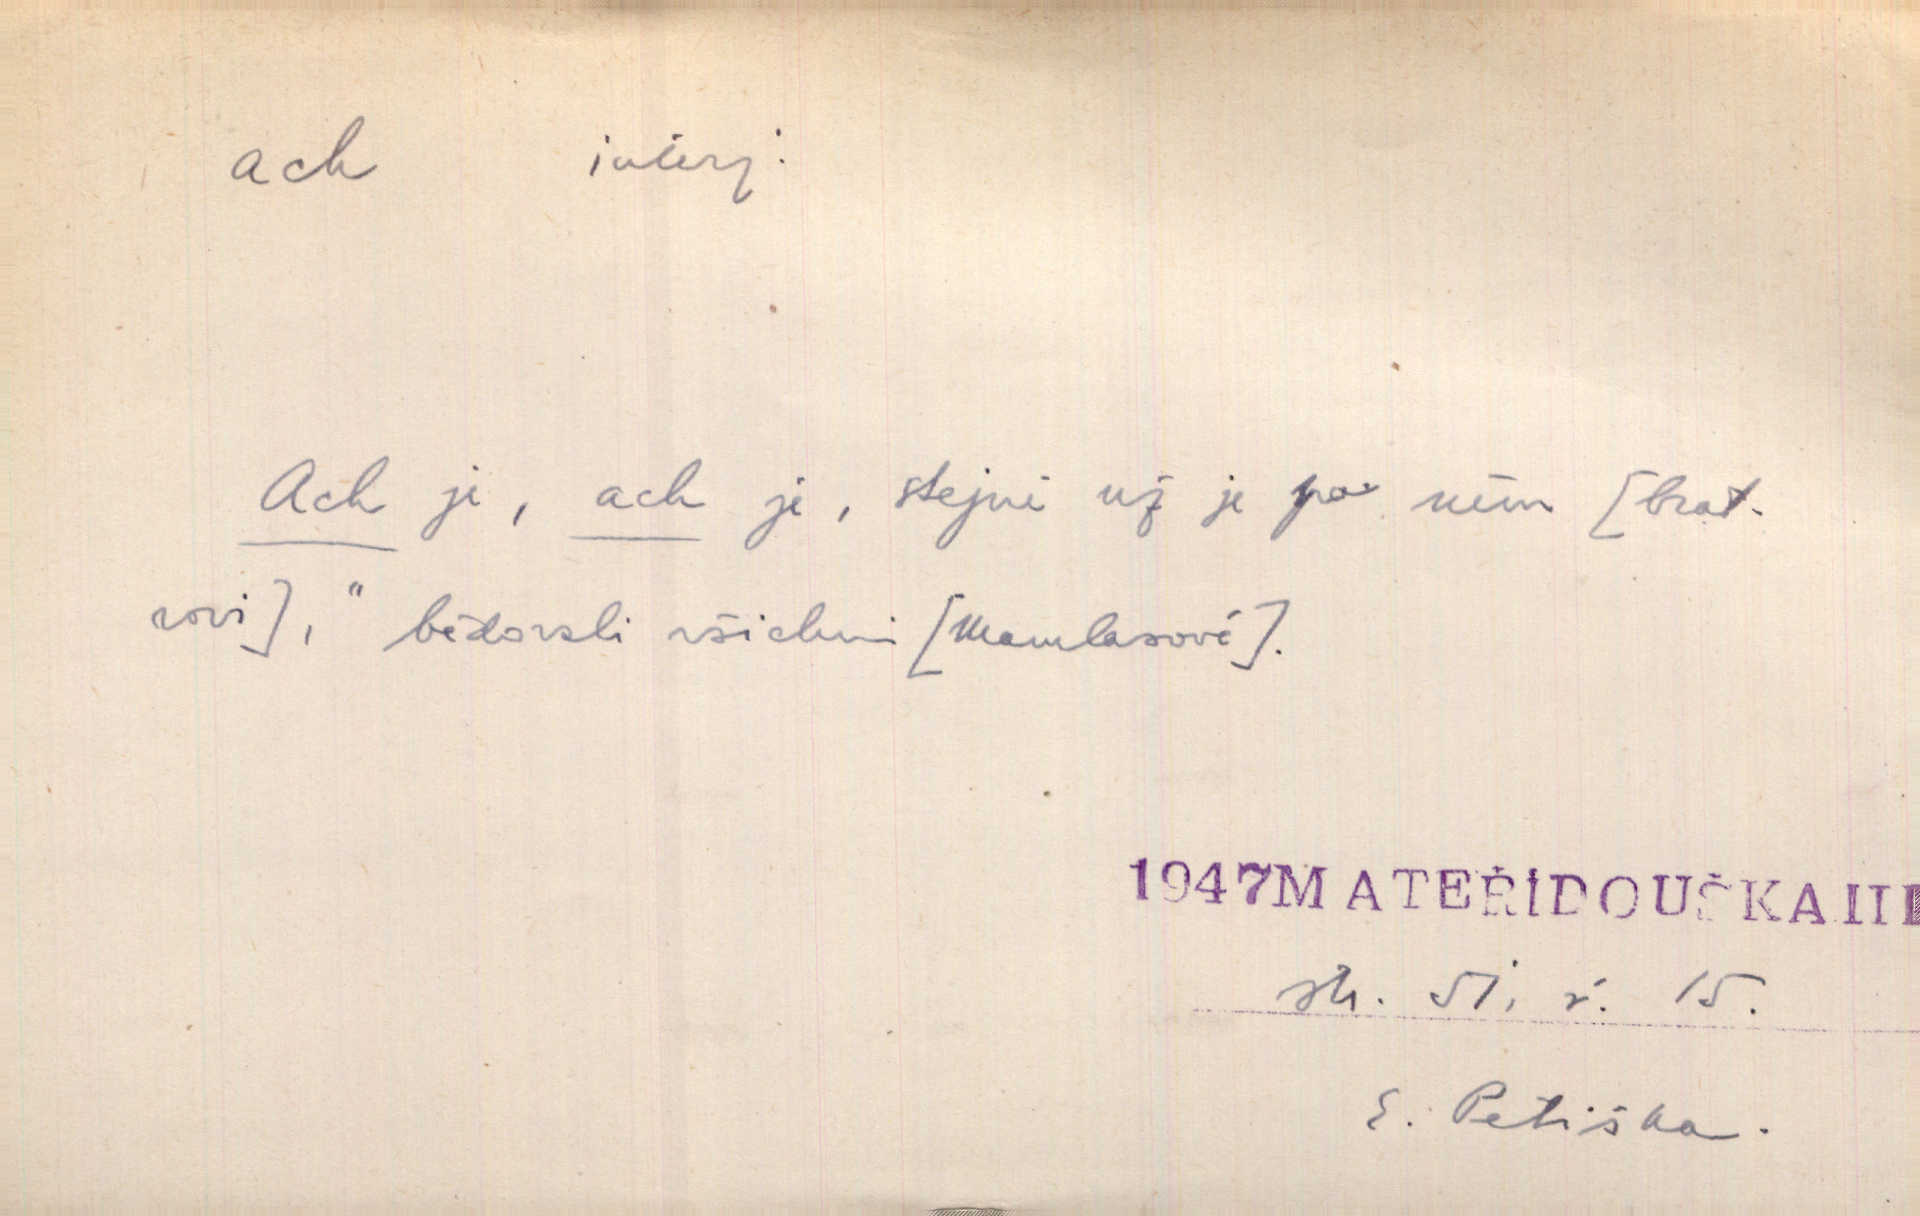 ach interj.
Ach je, ach je, stejně už je po něm [brat-
rovi]," bědovali všichni [Mamlasové].
1947 MATEŘÍDOUŠKA III
str. 51, ř. 15.
E. Petiška.